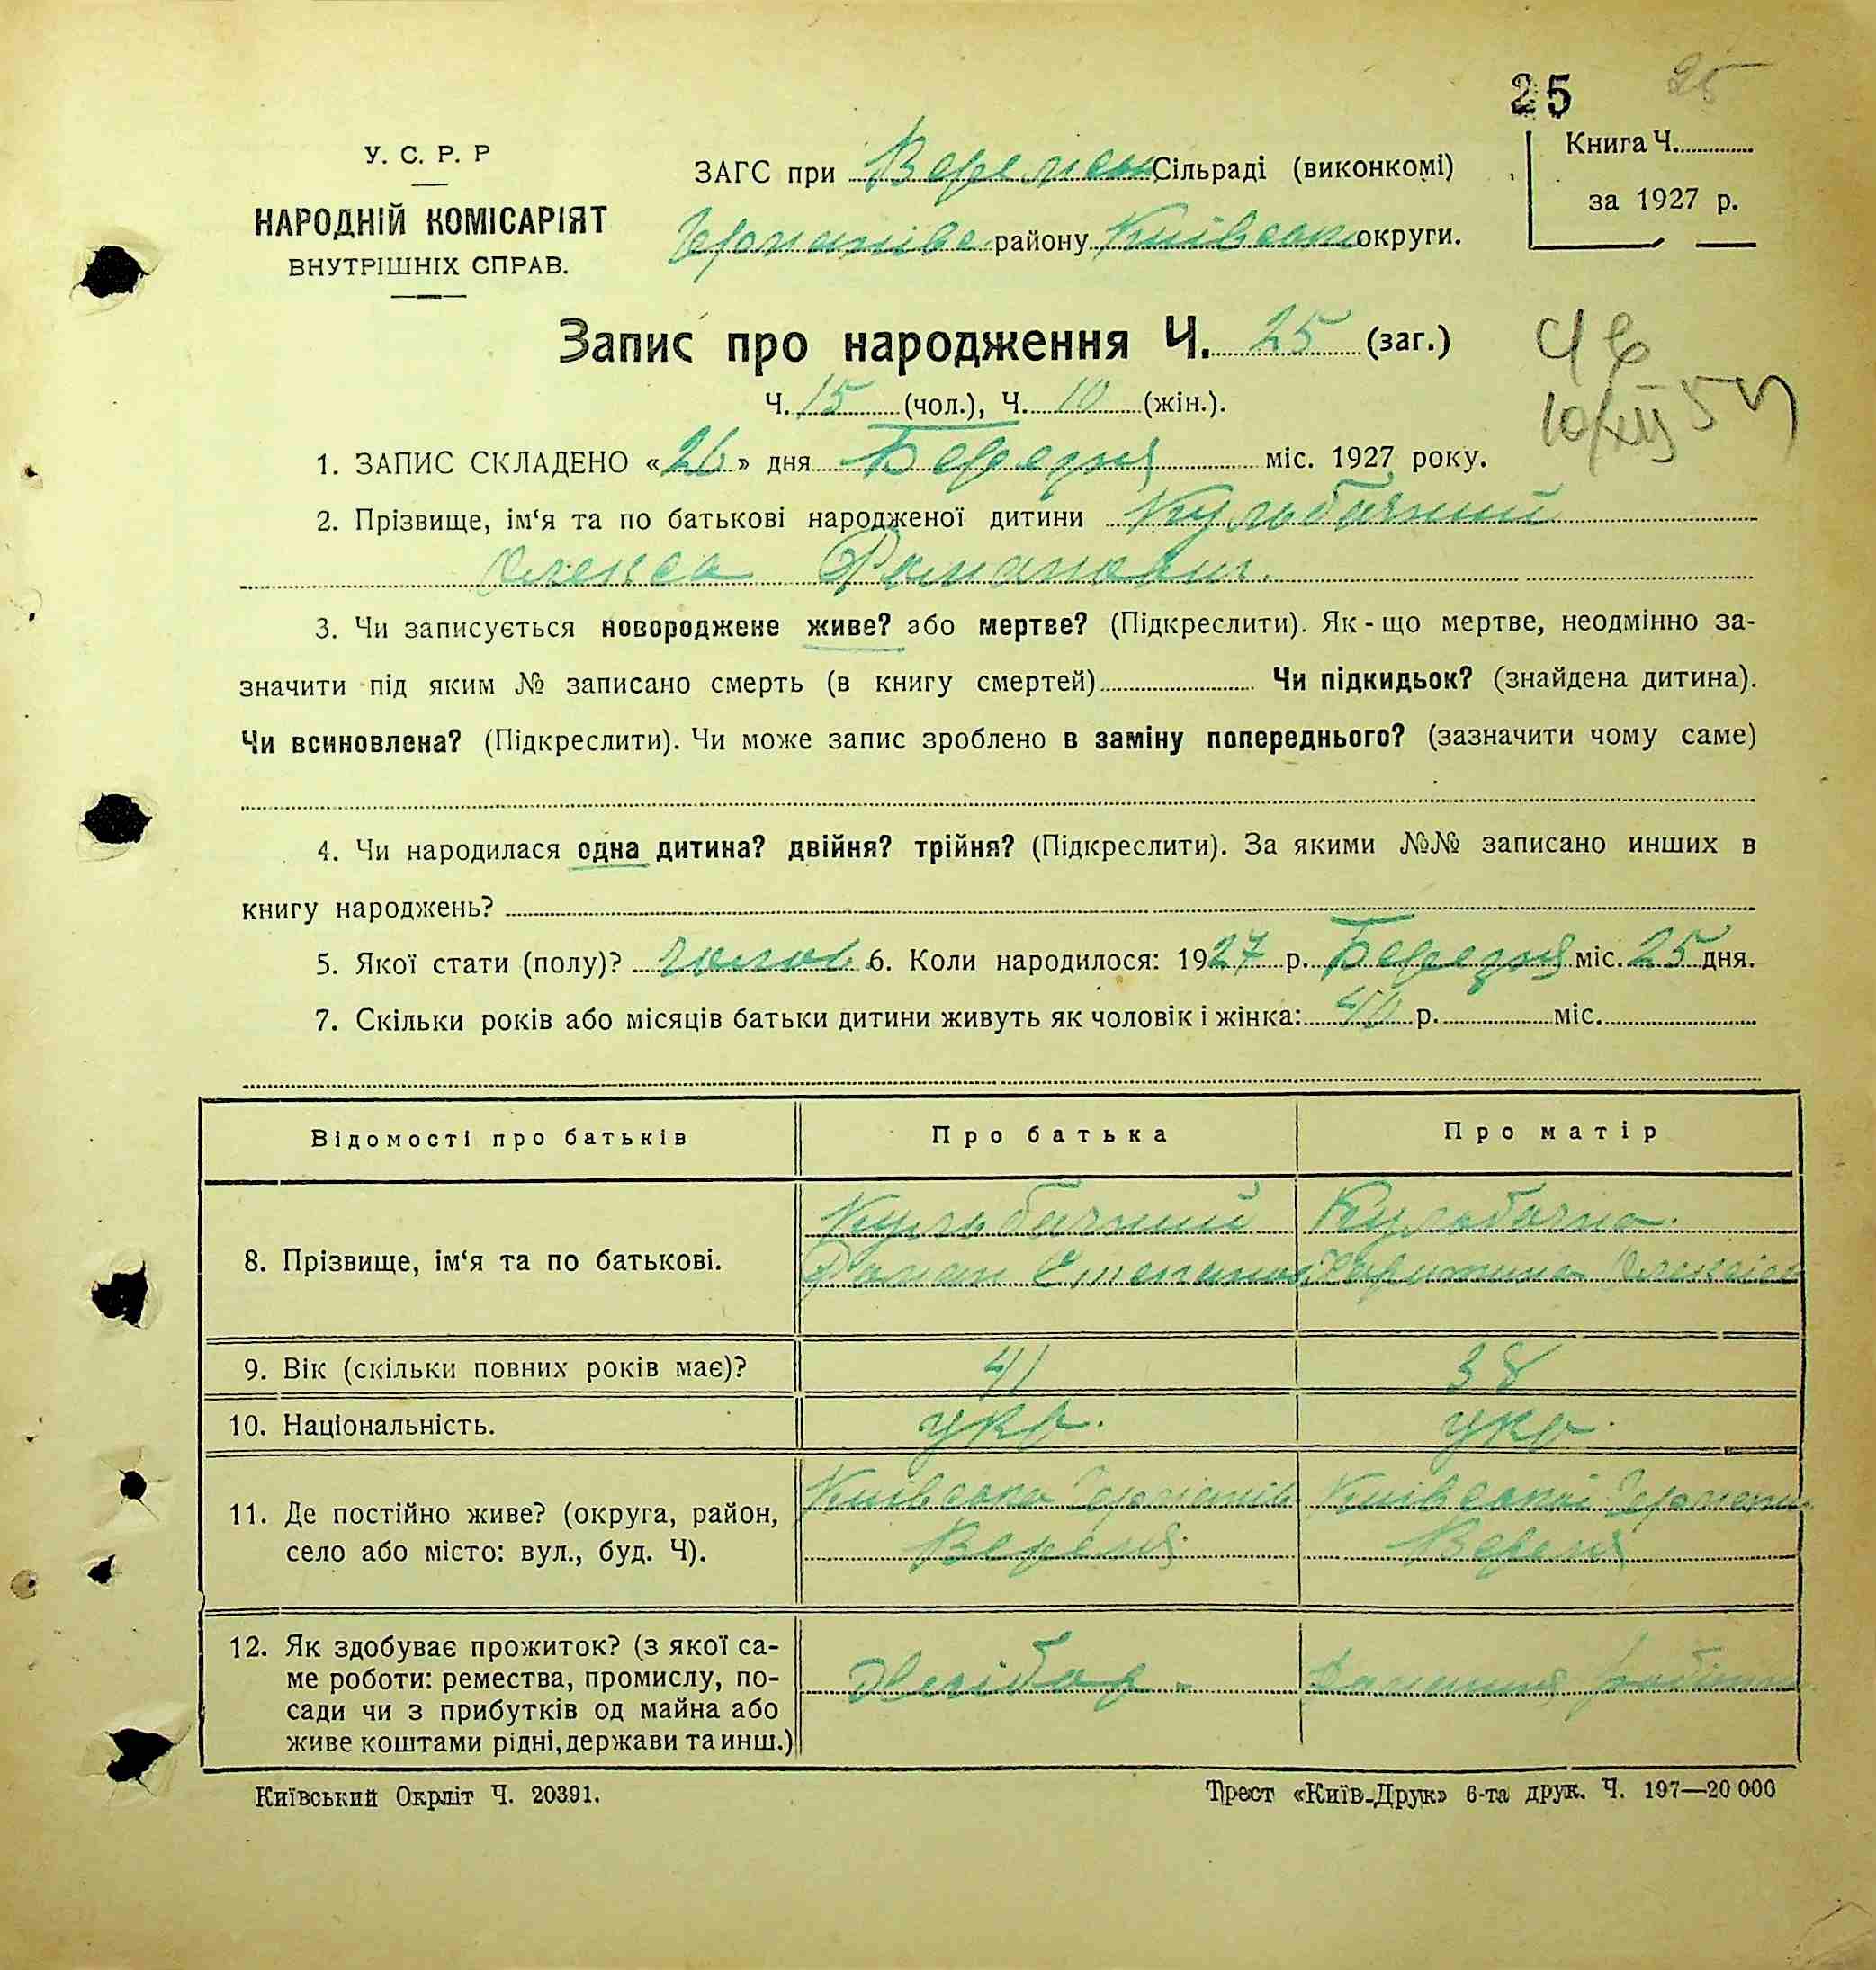 25 25
У. С. Р. Р
НАРОДНІЙ КОМІСАРІЯТ
ВНУТРІШНІХ СПРАВ.
ЗАГС при Веремськ Сільраді (виконкомі)
району Київськ округи.
Книга Ч.
за 1927 р.
Запис про народження Ч. 25 (заг.)
Ч. 15 (чол.), Ч. 10 (жін.).
10/XII 54
1. ЗАПИС СКЛАДЕНО «26» дня Березня міс. 1927 року.
2. Прізвище, ім‘я та по батькові народженої дитини Кульбачний
Олекса Романович.
3. Чи записується новороджене живе? або мертве? (Підкреслити). Як-що мертве, неодмінно за-
значити під яким № записано смерть (в книгу смертей) Чи підкидьок? (знайдена дитина).
Чи всиновлена? (Підкреслити). Чи може запис зроблено в заміну попереднього? (зазначити чому саме)
4. Чи народилася одна дитина? двійня? трійня? (Підкреслити). За якими №№ записано инших в
книгу народжень?
5. Якої стати (полу)? чолов 6. Коли народилося: 1927 р. Березня міс. 25 дня.
7. Скільки років або місяців батьки дитини живуть як чоловік і жінка: р. міс.
Відомості про батьків Про батька Про матір
8. Прізвище, ім‘я та по батькові.
Кульбачний Кульбачна
Роман Степанов
9. Вік (скільки повних років має)? 41 38
10. Національність. укр. укр.
11. Де постійно живе? (округа, район,
село або місто: вул., буд. Ч).
Київська Київської
Веремя Веремя
12. Як здобуває прожиток? (з якої са-
ме роботи: ремества, промислу, по-
сади чи з прибутків од майна або
живе коштами рідні, держави та инш.)
Хлібор. Домашня робітн
Київський Окрліт Ч. 20391.
Трест «Київ-Друк» 6-та друк. Ч. 197—20 000